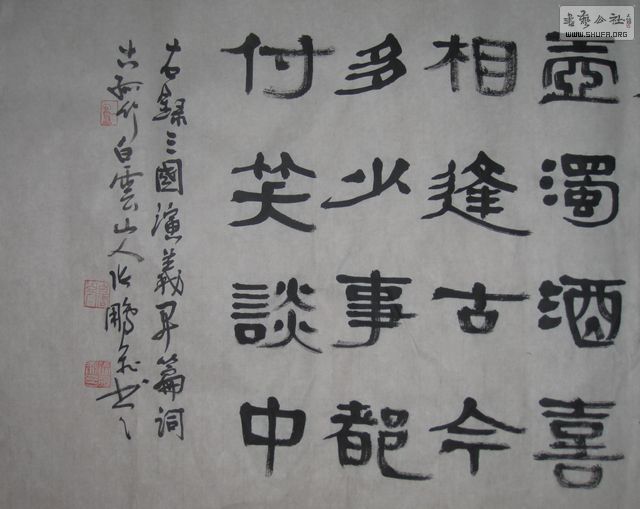 壺濁酒喜
相逢古今
多少事都
付笑談中
右錄三國演義篇詞
古孤竹白雲山人张鵬书
書藝公社
WWW.SHUFA.ORG